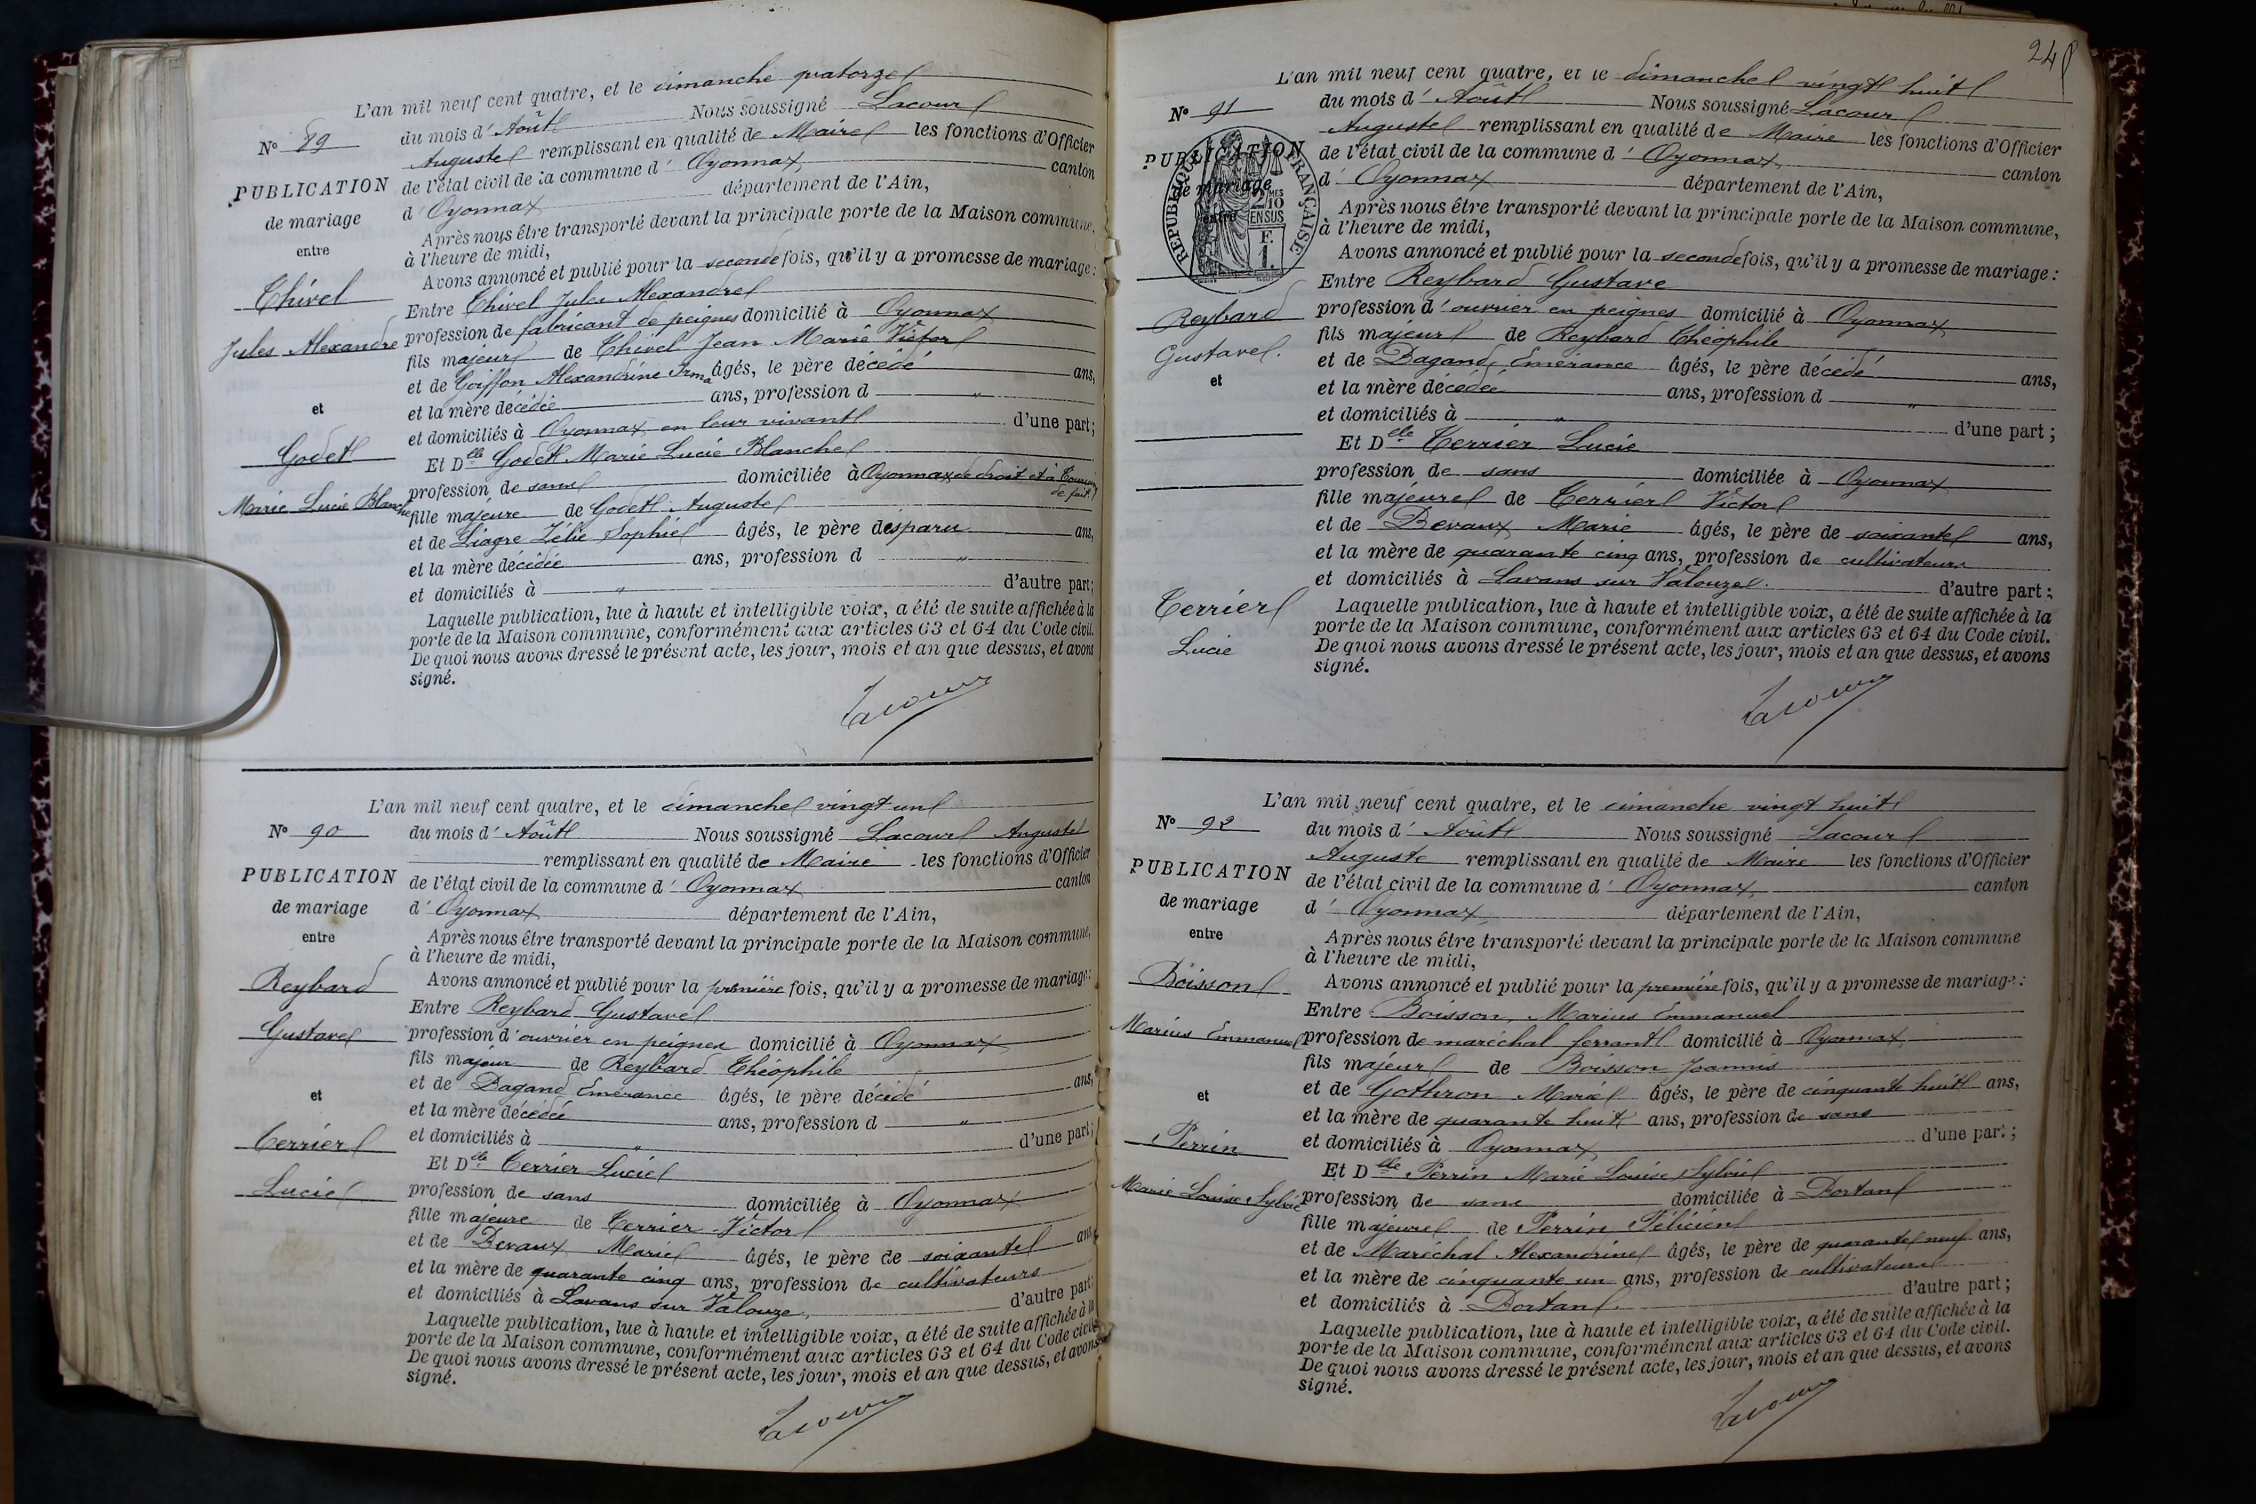 L'an mil neuf cent quatre, et le dimanche quatorze
Nº 89
du mois d'Août Nous soussigné Lacour
Auguste remplissant en qualité de Maire les fonctions d'Officier
PUBLICATION
de l'état civil de la commune d'Oyonnax, canton
d'Oyonnax département de l'Ain,
de mariage
Après nous être transporté devant la principale porte de la Maison commune,
entre
à l'heure de midi,
Avons annoncé et publié pour la seconde fois, qu'il y a promesse de mariage :
Thivel
Entre Thivel Jules Alexandre
profession de fabricant de peignes domicilié à Oyonnax
Jules Alexandre
fils majeur de Thivel Jean Marie Victor
et de Goiffon Alexandrine Irma âgés, le père décédé ans,
et
et la mère décédée ans, profession d "
et domiciliés à Oyonnax en leur vivant d'une part ;
Godet
Et Dlle Godet Marie Lucie Blanche
profession de sans domiciliée à Oyonnax de droit et à
de fait.
Marie Lucie Blanche
fille majeure de Godet Auguste
et de Liagre Zélie Sophie âgés, le père disparu ans,
et la mère décédée ans, profession d "
et domiciliés à " d'autre part ;
Laquelle publication, lue à haute et intelligible voix, a été de suite affichée à la
porte de la Maison commune, conformément aux articles 63 et 64 du Code civil.
De quoi nous avons dressé le présent acte, les jour, mois et an que dessus, et avons
signé.
Lacour
L'an mil neuf cent quatre, et le dimanche vingt un
Nº 90
du mois d'Août Nous soussigné Lacour Auguste
remplissant en qualité de Maire les fonctions d'Officier
PUBLICATION
de l'état civil de la commune d'Oyonnax canton
de mariage
d'Oyonnax département de l'Ain,
entre
Après nous être transporté devant la principale porte de la Maison commune,
à l'heure de midi,
Reybard
Avons annoncé et publié pour la première fois, qu'il y a promesse de mariage :
Entre Reybard Gustave
Gustave
profession d'ouvrier en peignes domicilié à Oyonnax
fils majeur de Reybard Théophile
et de Dagand Emérance âgés, le père décédé ans,
et
et la mère décédée ans, profession d "
et domiciliés à " d'une part ;
Terrier
Et Dlle Terrier Lucie
Lucie
profession de sans domiciliée à Oyonnax
fille majeure de Terrier Victor
et de Devaux Marie âgés, le père de soixante ans,
et la mère de quarante cinq ans, profession de cultivateurs
et domiciliés à Lavans sur Valouze, d'autre part ;
Laquelle publication, lue à haute et intelligible voix, a été de suite affichée à la
porte de la Maison commune, conformément aux articles 63 et 64 du Code civil.
De quoi nous avons dressé le présent acte, les jour, mois et an que dessus, et avons
signé.
Lacour
24
L'an mil neuf cent quatre, et le dimanche vingt huit
Nº 91
du mois d'Août Nous soussigné Lacour
Auguste remplissant en qualité de Maire les fonctions d'Officier
PUBLICATION
de l'état civil de la commune d'Oyonnax, canton
de mariage
d'Oyonnax département de l'Ain,
entre
RÉPUBLIQUE FRANÇAISE
2/10
EN SUS
F.
1
Après nous être transporté devant la principale porte de la Maison commune,
à l'heure de midi,
Avons annoncé et publié pour la seconde fois, qu'il y a promesse de mariage :
Entre Reybard Gustave
Reybard
profession d'ouvrier en peignes domicilié à Oyonnax
Gustave.
fils majeur de Reybard Théophile
et de Dagand Emérance âgés, le père décédé ans,
et
et la mère décédée ans, profession d "
et domiciliés à " d'une part ;
Et Dlle Terrier Lucie
profession de sans domiciliée à Oyonnax
fille majeure de Terrier Victor
et de Devaux Marie âgés, le père de soixante ans,
et la mère de quarante cinq ans, profession de cultivateurs
et domiciliés à Lavans sur Valouze. d'autre part ;
Terrier
Laquelle publication, lue à haute et intelligible voix, a été de suite affichée à la
porte de la Maison commune, conformément aux articles 63 et 64 du Code civil.
Lucie
De quoi nous avons dressé le présent acte, les jour, mois et an que dessus, et avons
signé.
Lacour
L'an mil neuf cent quatre, et le dimanche vingt huit
Nº 92
du mois d'Août Nous soussigné Lacour
Auguste remplissant en qualité de Maire les fonctions d'Officier
PUBLICATION
de l'état civil de la commune d'Oyonnax, canton
de mariage
d'Oyonnax département de l'Ain,
entre
Après nous être transporté devant la principale porte de la Maison commune
à l'heure de midi,
Boisson
Avons annoncé et publié pour la première fois, qu'il y a promesse de mariage :
Entre Boisson, Marius Emmanuel
Marius Emmanuel
profession de maréchal ferrant domicilié à Oyonnax,
fils majeur de Boisson Joannis
et de Gothron Marie âgés, le père de cinquante huit ans,
et
et la mère de quarante huit ans, profession de sans
Perrin
et domiciliés à Oyonnax, d'une part ;
Et Dlle Perrin Marie Louise Sylvie
Marie Louise Sylvie
profession de sans domiciliée à Dortan
fille majeure de Perrin Félicien
et de Maréchal Alexandrine âgés, le père de quarante neuf ans,
et la mère de cinquante un ans, profession de cultivateurs
et domiciliés à Dortan. d'autre part ;
Laquelle publication, lue à haute et intelligible voix, a été de suite affichée à la
porte de la Maison commune, conformément aux articles 63 et 64 du Code civil.
De quoi nous avons dressé le présent acte, les jour, mois et an que dessus, et avons
signé.
Lacour